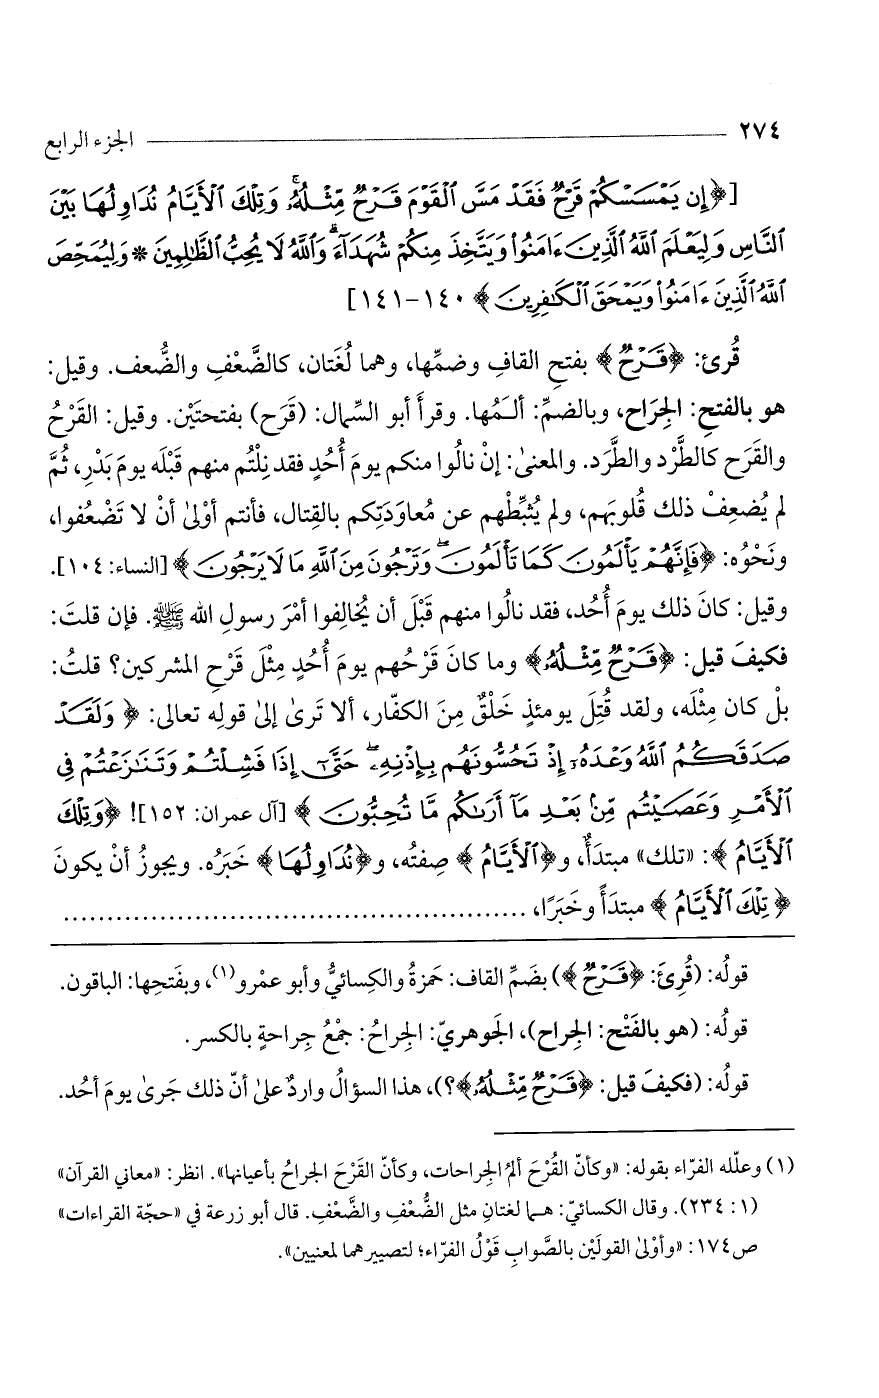 ٢٧٤ الجزء الرابع
[﴿إِن يَمْسَسْكُمْ قَرْحٌ فَقَدْ مَسَّ ٱلْقَوْمَ قَرْحٌ مِّثْلُهُۥ ۚ وَتِلْكَ ٱلْأَيَّامُ نُدَاوِلُهَا بَيْنَ
ٱلنَّاسِ وَلِيَعْلَمَ ٱللَّهُ ٱلَّذِينَ ءَامَنُوا۟ وَيَتَّخِذَ مِنكُمْ شُهَدَآءَ ۗ وَٱللَّهُ لَا يُحِبُّ ٱلظَّـٰلِمِينَ * وَلِيُمَحِّصَ
ٱللَّهُ ٱلَّذِينَ ءَامَنُوا۟ وَيَمْحَقَ ٱلْكَـٰفِرِينَ﴾ ١٤٠-١٤١]
قُرئ: ﴿قَرْحٌ﴾ بفتحِ القافِ وضمِّها، وهما لُغَتان، كالضَّعْفِ والضُّعف. وقيل:
هو بالفتحِ: الجِرَاح، وبالضمِّ: ألَـمُها. وقرأَ أبو السِّمال: (قَرَح) بفتحتَيْن. وقيل: القَرْحُ
والقَرَح كالطَّرْد والطَّرَد. والمعنىٰ: إنْ نالُوا منكم يومَ أُحُدٍ فقد نِلْتُم منهم قَبْلَه يومَ بَدْرٍ، ثُمَّ
لم يُضعِفْ ذلك قُلوبَهم، ولم يُثبِّطْهم عن مُعاوَدَتِكم بالقِتال، فأنتم أوْلىٰ أنْ لا تَضْعُفوا،
ونَحْوُه: ﴿فَإِنَّهُمْ يَأْلَمُونَ كَمَا تَأْلَمُونَ ۖ وَتَرْجُونَ مِنَ ٱللَّهِ مَا لَا يَرْجُونَ﴾ [النساء: ١٠٤].
وقيل: كانَ ذلك يومَ أُحُد، فقد نالُوا منهم قَبْلَ أن يُخالِفوا أمْرَ رسولِ الله ﷺ. فإن قلتَ:
فكيفَ قيل: ﴿قَرْحٌ مِّثْلُهُۥ﴾ وما كانَ قَرْحُهم يومَ أُحُدٍ مِثْلَ قَرْحِ المشركين؟ قلتُ:
بلْ كان مِثْلَه، ولقد قُتِلَ يومئذٍ خَلْقٌ مِنَ الكفّار، ألا تَرىٰ إلىٰ قولِه تعالى: ﴿وَلَقَدْ
صَدَقَكُمُ ٱللَّهُ وَعْدَهُۥٓ إِذْ تَحُسُّونَهُم بِإِذْنِهِۦ ۖ حَتَّىٰٓ إِذَا فَشِلْتُمْ وَتَنَـٰزَعْتُمْ فِى
ٱلْأَمْرِ وَعَصَيْتُم مِّنۢ بَعْدِ مَآ أَرَىٰكُم مَّا تُحِبُّونَ﴾ [آل عمران: ١٥٢]! ﴿وَتِلْكَ
ٱلْأَيَّامُ﴾: «تلك» مبتدَأٌ، و﴿ٱلْأَيَّامُ﴾ صِفتُه، و﴿نُدَاوِلُهَا﴾ خَبَرُه. ويجوزُ أنْ يكونَ
﴿تِلْكَ ٱلْأَيَّامُ﴾ مبتدَأً وخَبَرًا، ....................................................
قولُه: (قُرِئَ: ﴿قَرْحٌ﴾) بضَمِّ القاف: حَمزةُ والكِسائيُّ وأبو عمْرو(١)، وبفَتحِها: الباقون.
قولُه: (هو بالفَتْح: الجِراح)، الجَوهريّ: الجِراحُ: جمْعُ جِراحةٍ بالكسر.
قولُه: (فكيفَ قيل: ﴿قَرْحٌ مِّثْلُهُۥ﴾؟)، هذا السؤالُ واردٌ علىٰ أنّ ذلك جَرىٰ يومَ أحُد.
(١) وعلّله الفرّاء بقوله: «وكأنّ القُرْحَ ألمُ الجِراحات، وكأنّ القَرْحَ الجراحُ بأعيانها». انظر: «معاني القرآن»
(١: ٢٣٤). وقال الكسائيّ: هـما لغتانِ مثل الضُّعْفِ والضَّعْفِ. قال أبو زرعة في «حجّة القراءات»
ص١٧٤: «وأوْلىٰ القولَيْن بالصَّوابِ قَوْلُ الفرّاء؛ لتصييرهما لمعنيين».